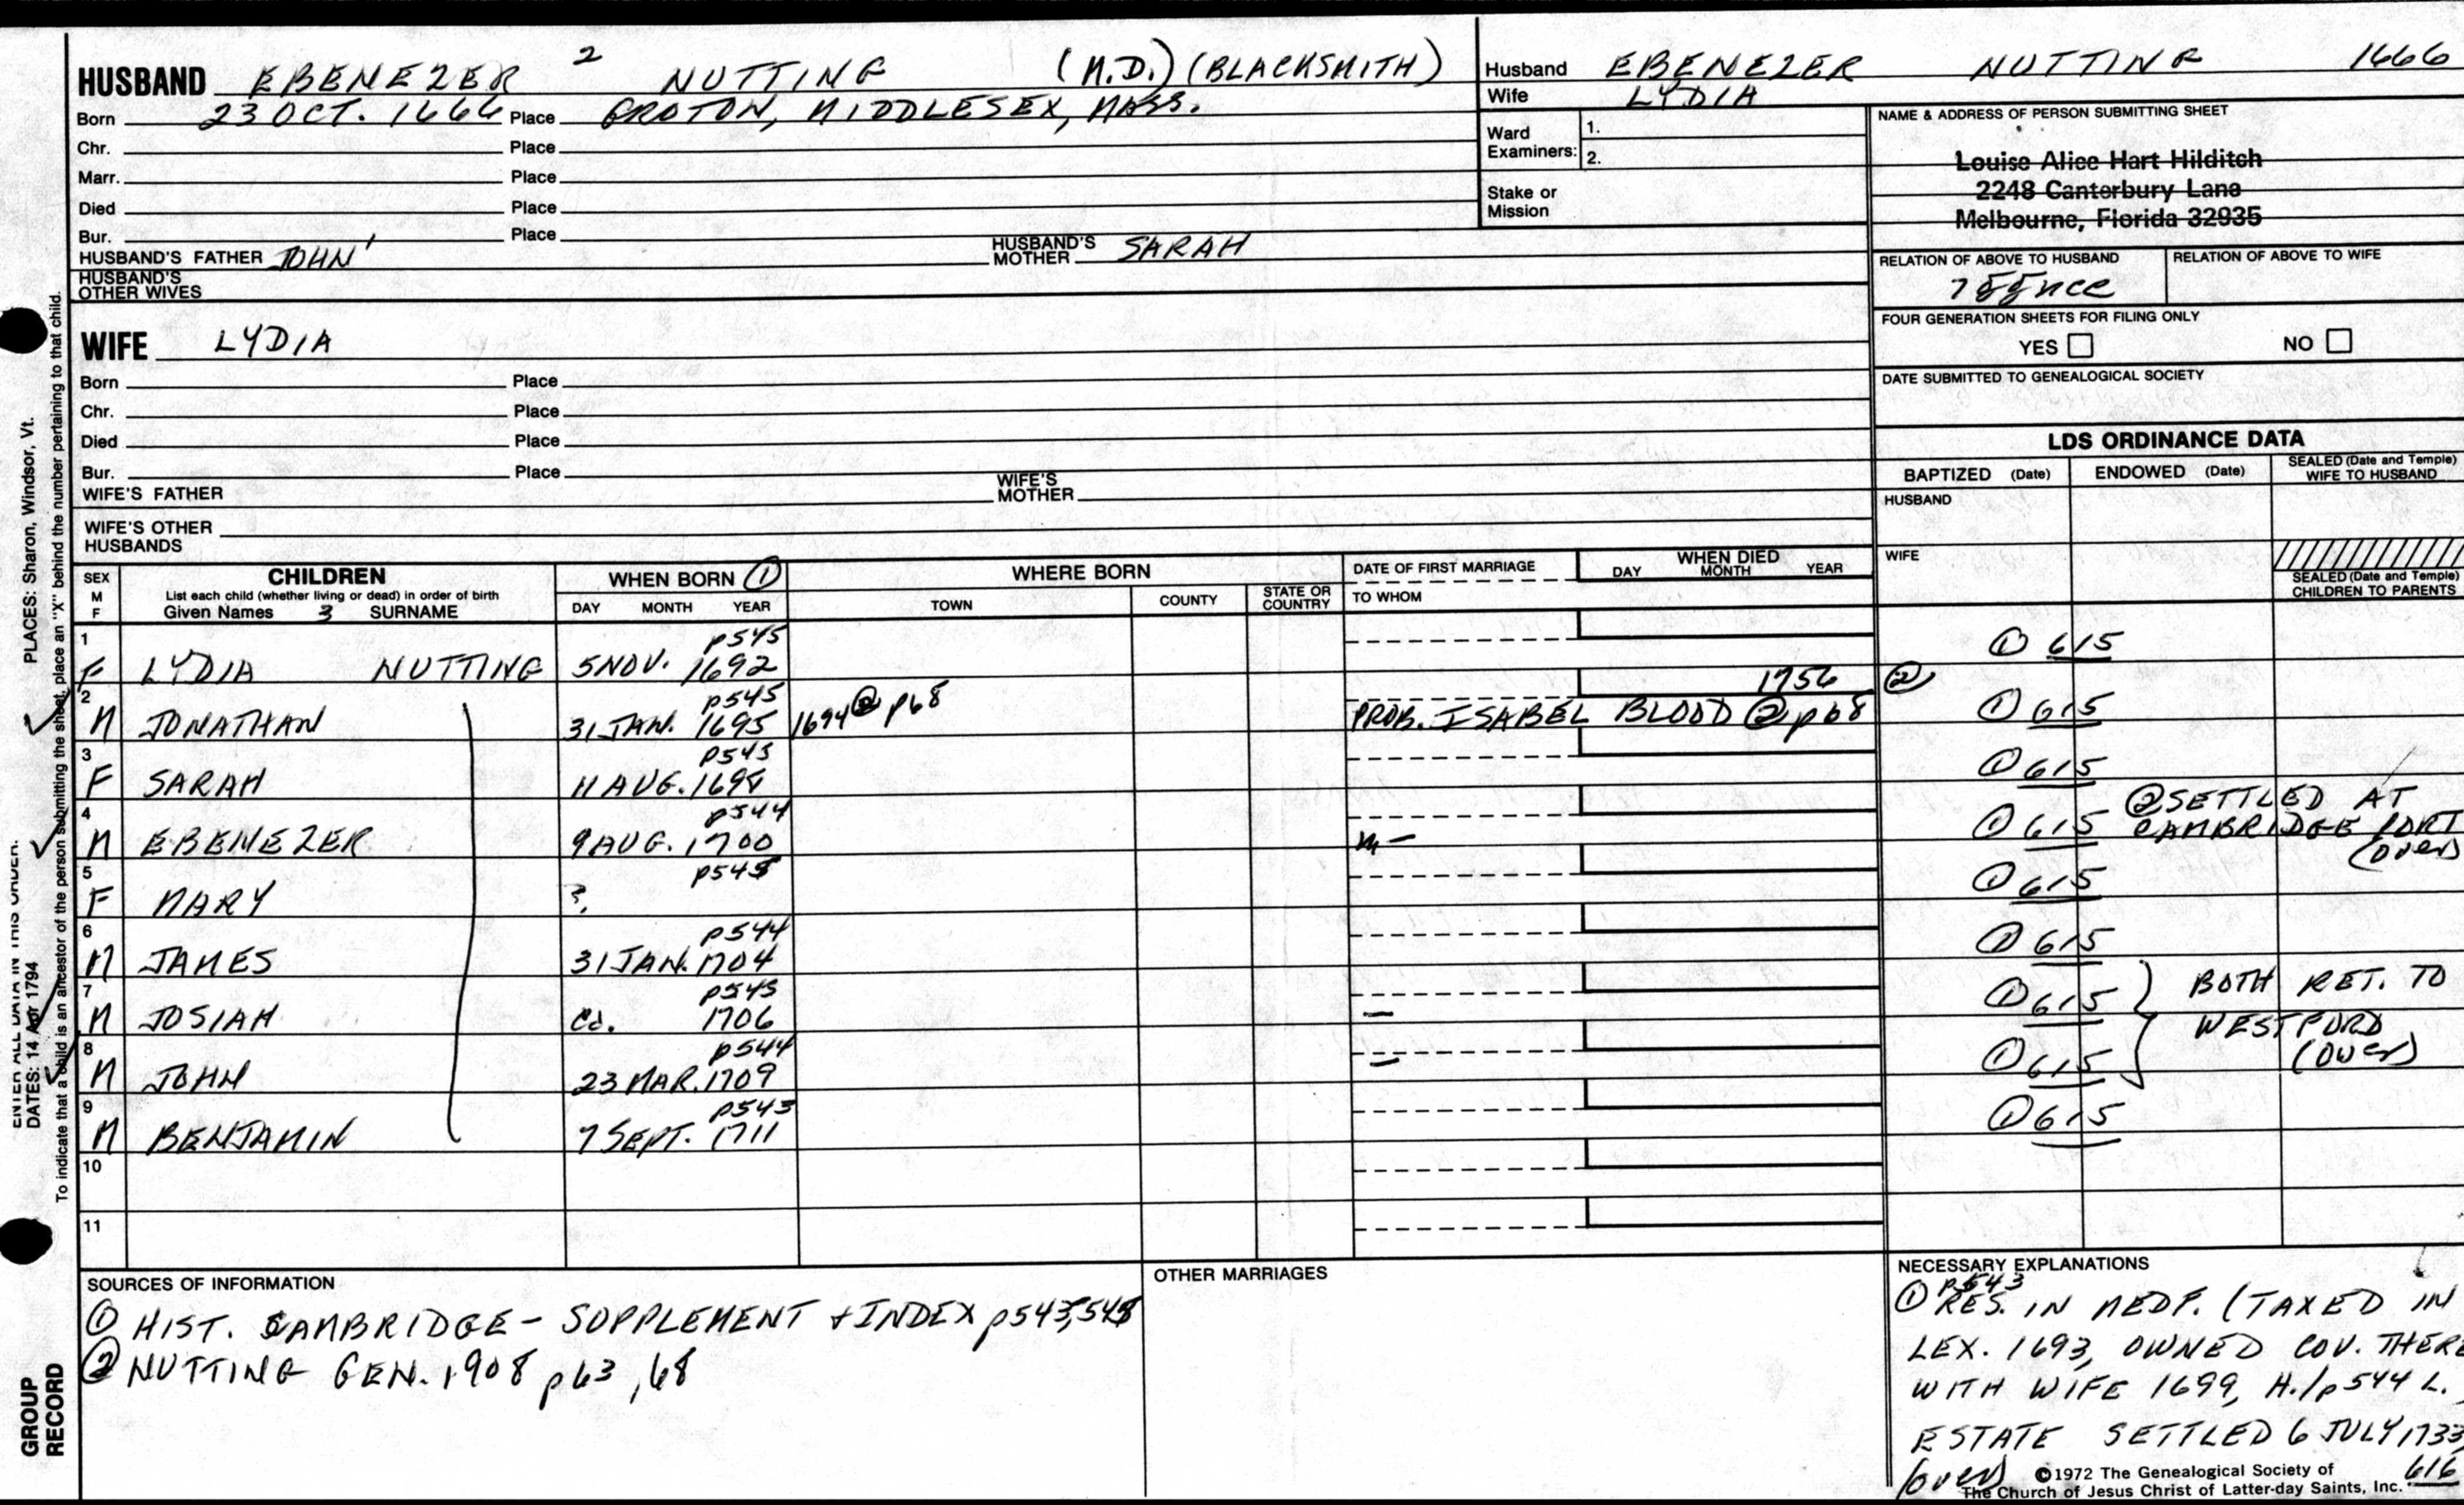 HUSBAND EBENEZER 2 NUTTING (M.D.) (BLACKSMITH)
Born 23 OCT. 1666 Place GROTON, MIDDLESEX, MASS.
Chr. Place
Marr. Place
Died Place
Bur. Place
HUSBAND'S FATHER JOHN 1 HUSBAND'S MOTHER SARAH
HUSBAND'S OTHER WIVES
Husband EBENEZER NUTTING 1666
Wife LYDIA
Ward Examiners: 1.
2.
Stake or Mission
NAME & ADDRESS OF PERSON SUBMITTING SHEET
Louise Alice Hart Hilditch
2248 Canterbury Lane
Melbourne, Florida 32935
RELATION OF ABOVE TO HUSBAND RELATION OF ABOVE TO WIFE
FOUR GENERATION SHEETS FOR FILING ONLY
YES NO
DATE SUBMITTED TO GENEALOGICAL SOCIETY
WIFE LYDIA
Born Place
Chr. Place
Died Place
Bur. Place
WIFE'S FATHER WIFE'S MOTHER
WIFE'S OTHER HUSBANDS
LDS ORDINANCE DATA
BAPTIZED (Date) ENDOWED (Date) SEALED (Date and Temple) WIFE TO HUSBAND
HUSBAND
WIFE
SEALED (Date and Temple) CHILDREN TO PARENTS
SEX M F
CHILDREN
List each child (whether living or dead) in order of birth
Given Names 3 SURNAME
WHEN BORN ①
DAY MONTH YEAR
WHERE BORN
TOWN COUNTY STATE OR COUNTRY
DATE OF FIRST MARRIAGE
TO WHOM
WHEN DIED
DAY MONTH YEAR
1 p545
F LYDIA NUTTING 5 NOV. 1692 ① 615
2 p545 1756 ②
M JONATHAN 31 JAN. 1695 1694 ② p68 PROB. ISABEL BLOOD ② p68 ① 615
3 p545
F SARAH 11 AUG. 1698 ① 615
4 p544
M EBENEZER 9 AUG. 1700 m- ① 615 ② SETTLED AT CAMBRIDGE PORT (over)
5 p545
F MARY ? ① 615
6 p544
M JAMES 31 JAN. 1704 ① 615
7 p545
M JOSIAH ca. 1706 — ① 615
8 p544
M JOHN 23 MAR. 1709 — ① 615
} BOTH RET. TO WESTFORD (over)
9 p543
M BENJAMIN 7 SEPT. 1711 ① 615
10
11
SOURCES OF INFORMATION
① HIST. CAMBRIDGE - SUPPLEMENT + INDEX p543,545
② NUTTING GEN. 1908 p63, 68
OTHER MARRIAGES
NECESSARY EXPLANATIONS
p543
① RES. IN MEDF. (TAXED IN
LEX. 1693, OWNED COV. THERE
WITH WIFE 1699, H./p544 L.
ESTATE SETTLED 6 JULY 1733
(over) 616
©1972 The Genealogical Society of
The Church of Jesus Christ of Latter-day Saints, Inc.
PLACES: Sharon, Windsor, Vt.
To indicate that a child is an ancestor of the person submitting the sheet, place an "X" behind the number pertaining to that child.
ENTER ALL DATA IN THIS ORDER:
DATES: 14 Apr 1794
GROUP RECORD